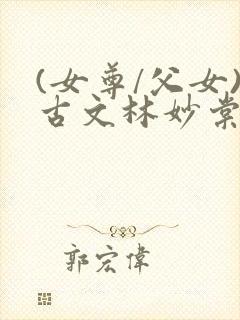 (女尊/父女)
古文林妙棠
郭宏偉